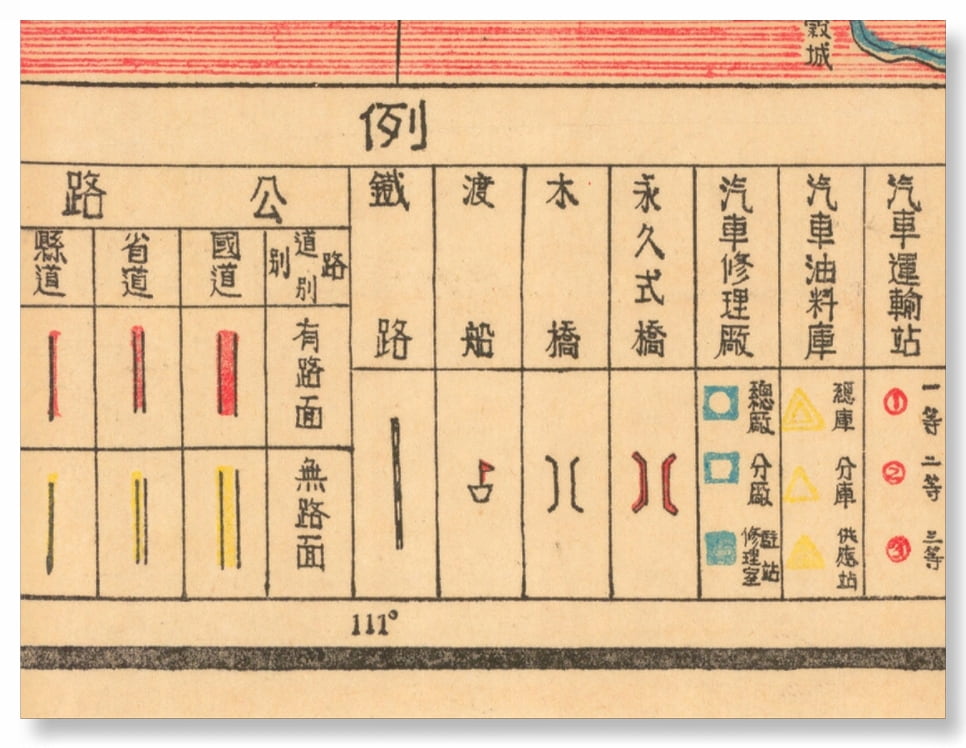 穀城
例
汽車運輸站
一等
二等
三等
汽車油料庫
總庫
分庫
供應站
汽車修理廠
總廠
分廠
站
修理室
永久式橋
木橋
渡船
鐵路
公路
路別
道別
國道
省道
縣道
有路面
無路面
111°